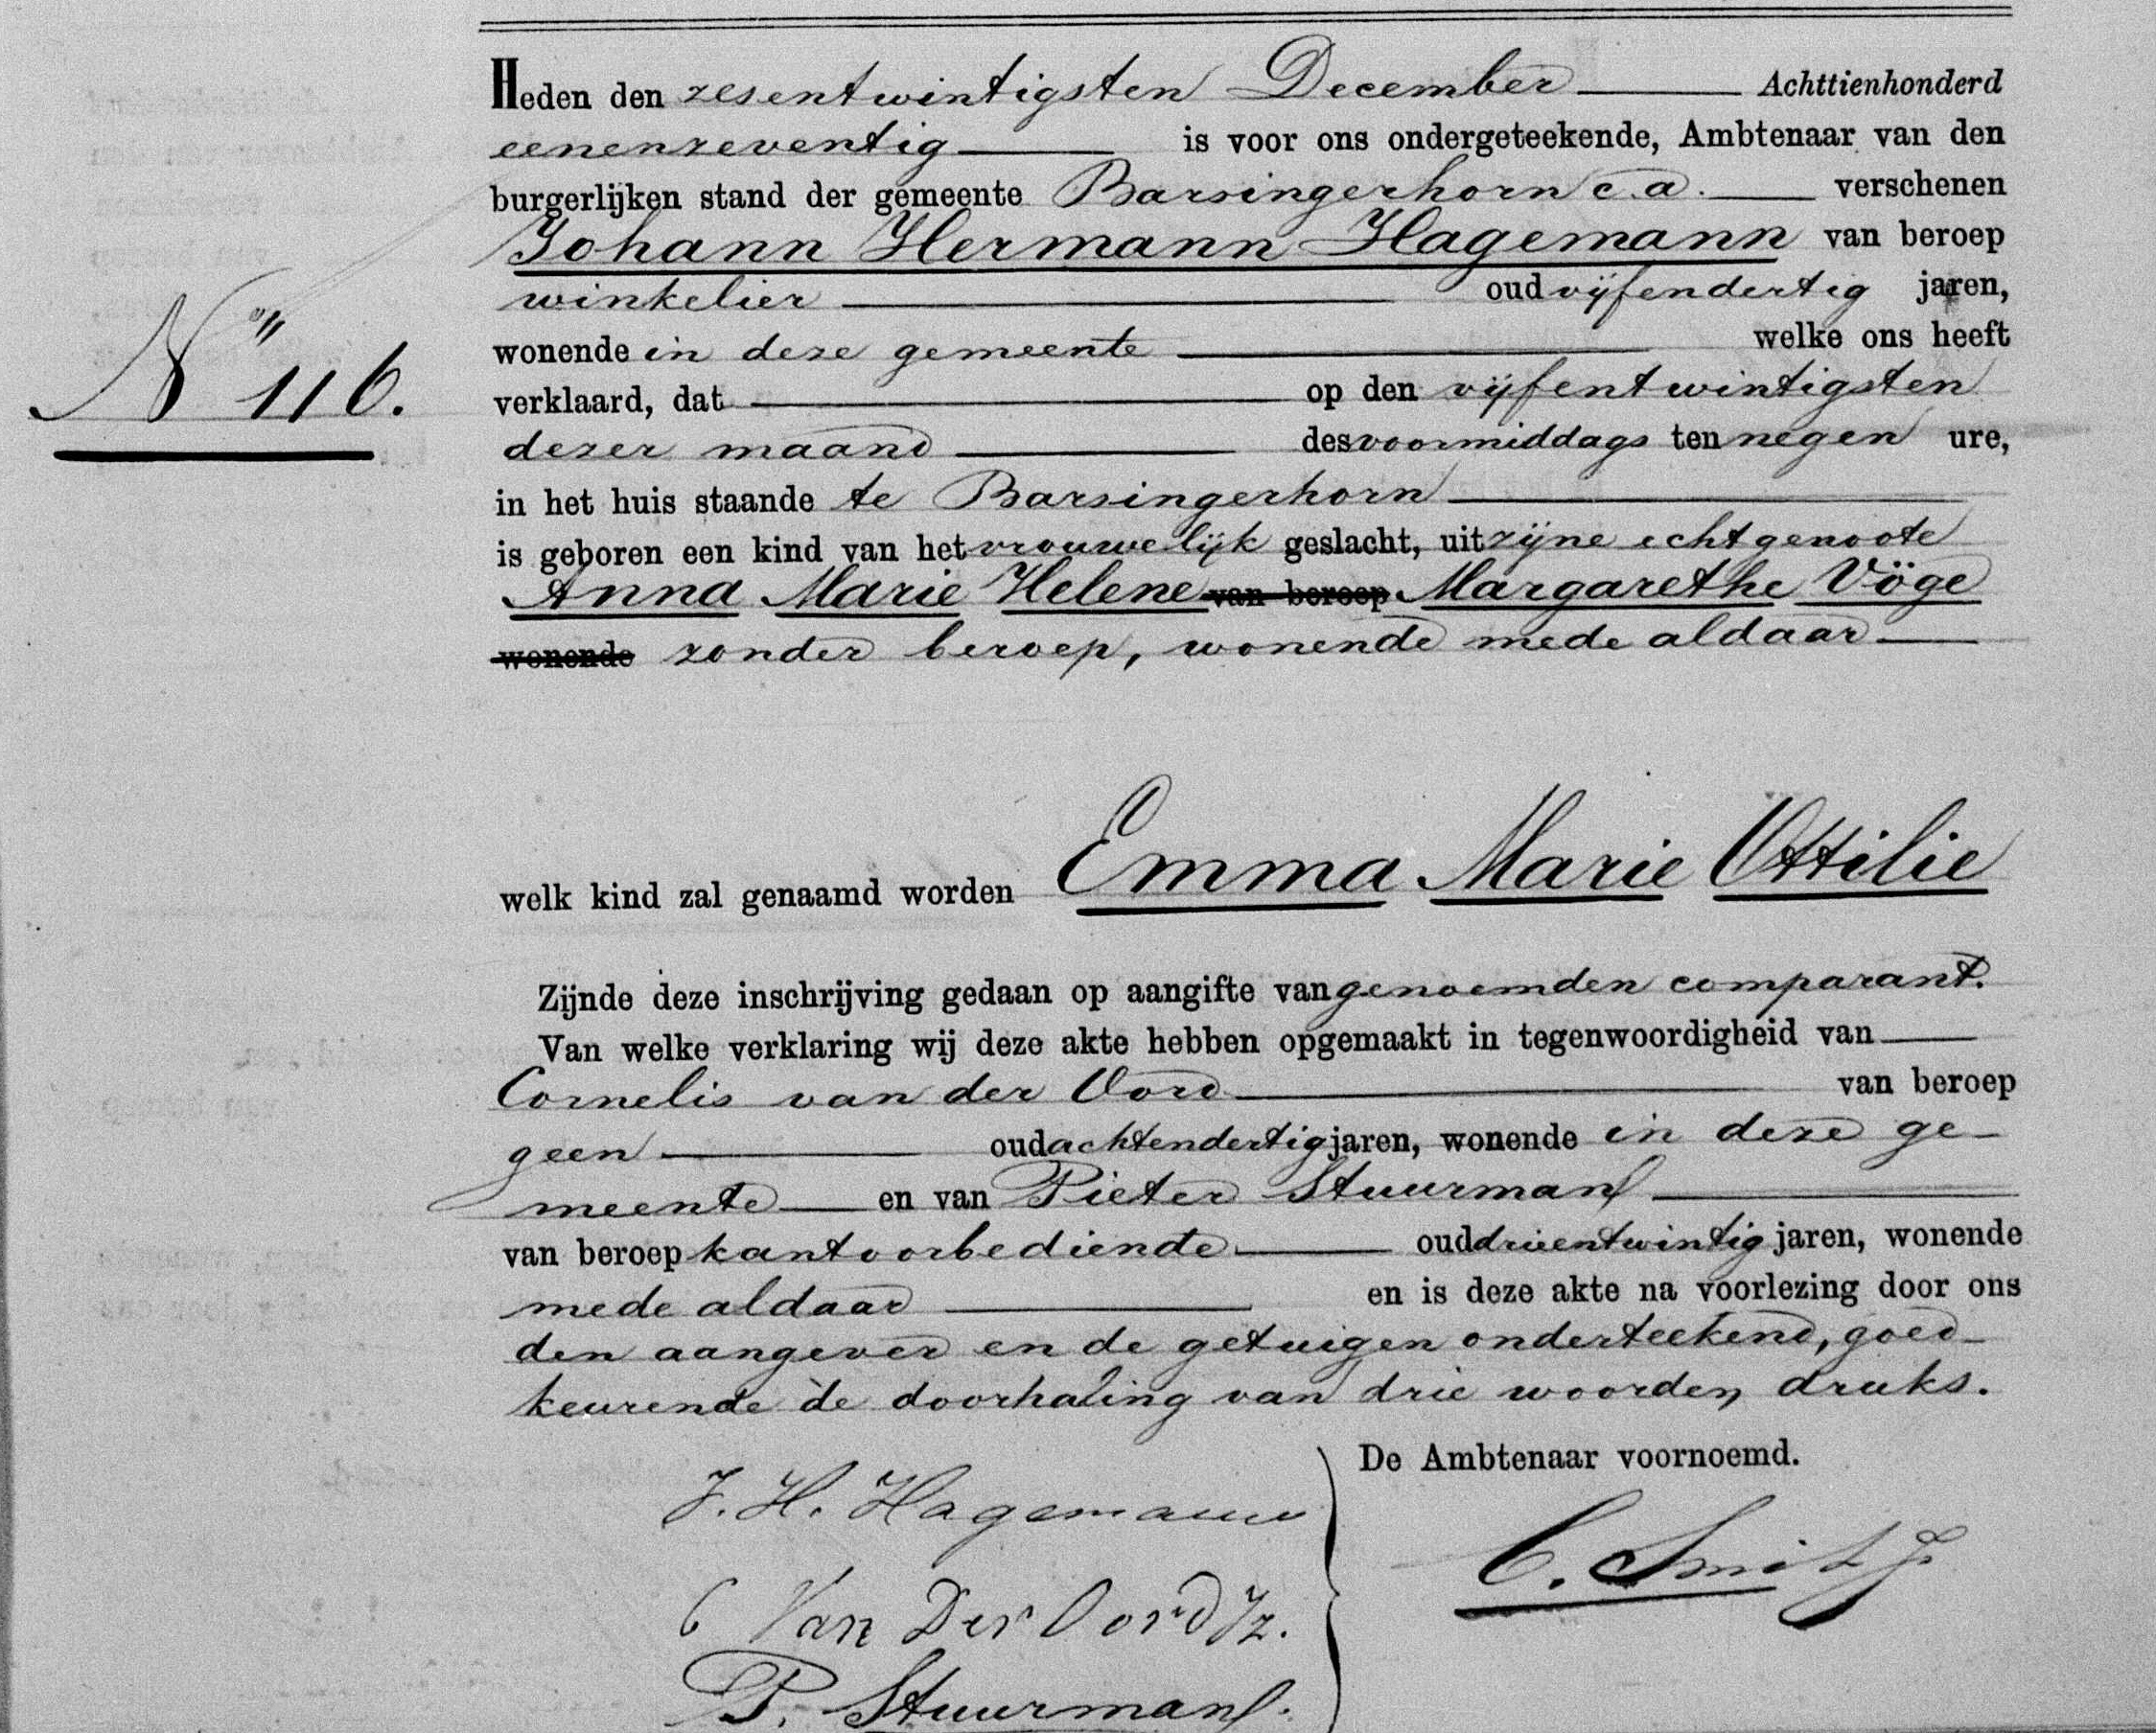 Heden den zesentwintigsten December Achttienhonderd
eenenzeventig is voor ons ondergeteekende, Ambtenaar van den
burgerlijken stand der gemeente Barsingerhorn c.a. verschenen
Johann Hermann Hagemann van beroep
winkelier oud vijfendertig jaren,
Nº 116.
wonende in deze gemeente welke ons heeft
verklaard, dat op den vijfentwintigsten
dezer maand des voormiddags ten negen ure,
in het huis staande te Barsingerhorn
is geboren een kind van het vrouwelijk geslacht, uit zijne echtgenoote
Anna Marie Helene van beroep Margarethe Vöge
wonende zonder beroep, wonende mede aldaar
welk kind zal genaamd worden Emma Marie Ottilie
Zijnde deze inschrijving gedaan op aangifte van genoemden comparant.
Van welke verklaring wij deze akte hebben opgemaakt in tegenwoordigheid van
Cornelis van der Oord van beroep
geen oud achtendertig jaren, wonende in deze ge-
meente en van Pieter Stuurman
van beroep kantoorbediende oud drieentwintig jaren, wonende
mede aldaar en is deze akte na voorlezing door ons
den aangever en de getuigen onderteekend, goed-
keurende de doorhaling van drie woorden druks.
De Ambtenaar voornoemd.
J. H. Hagemann
C. Smit Jz
C Van Der Oord Jz.
P. Stuurman.